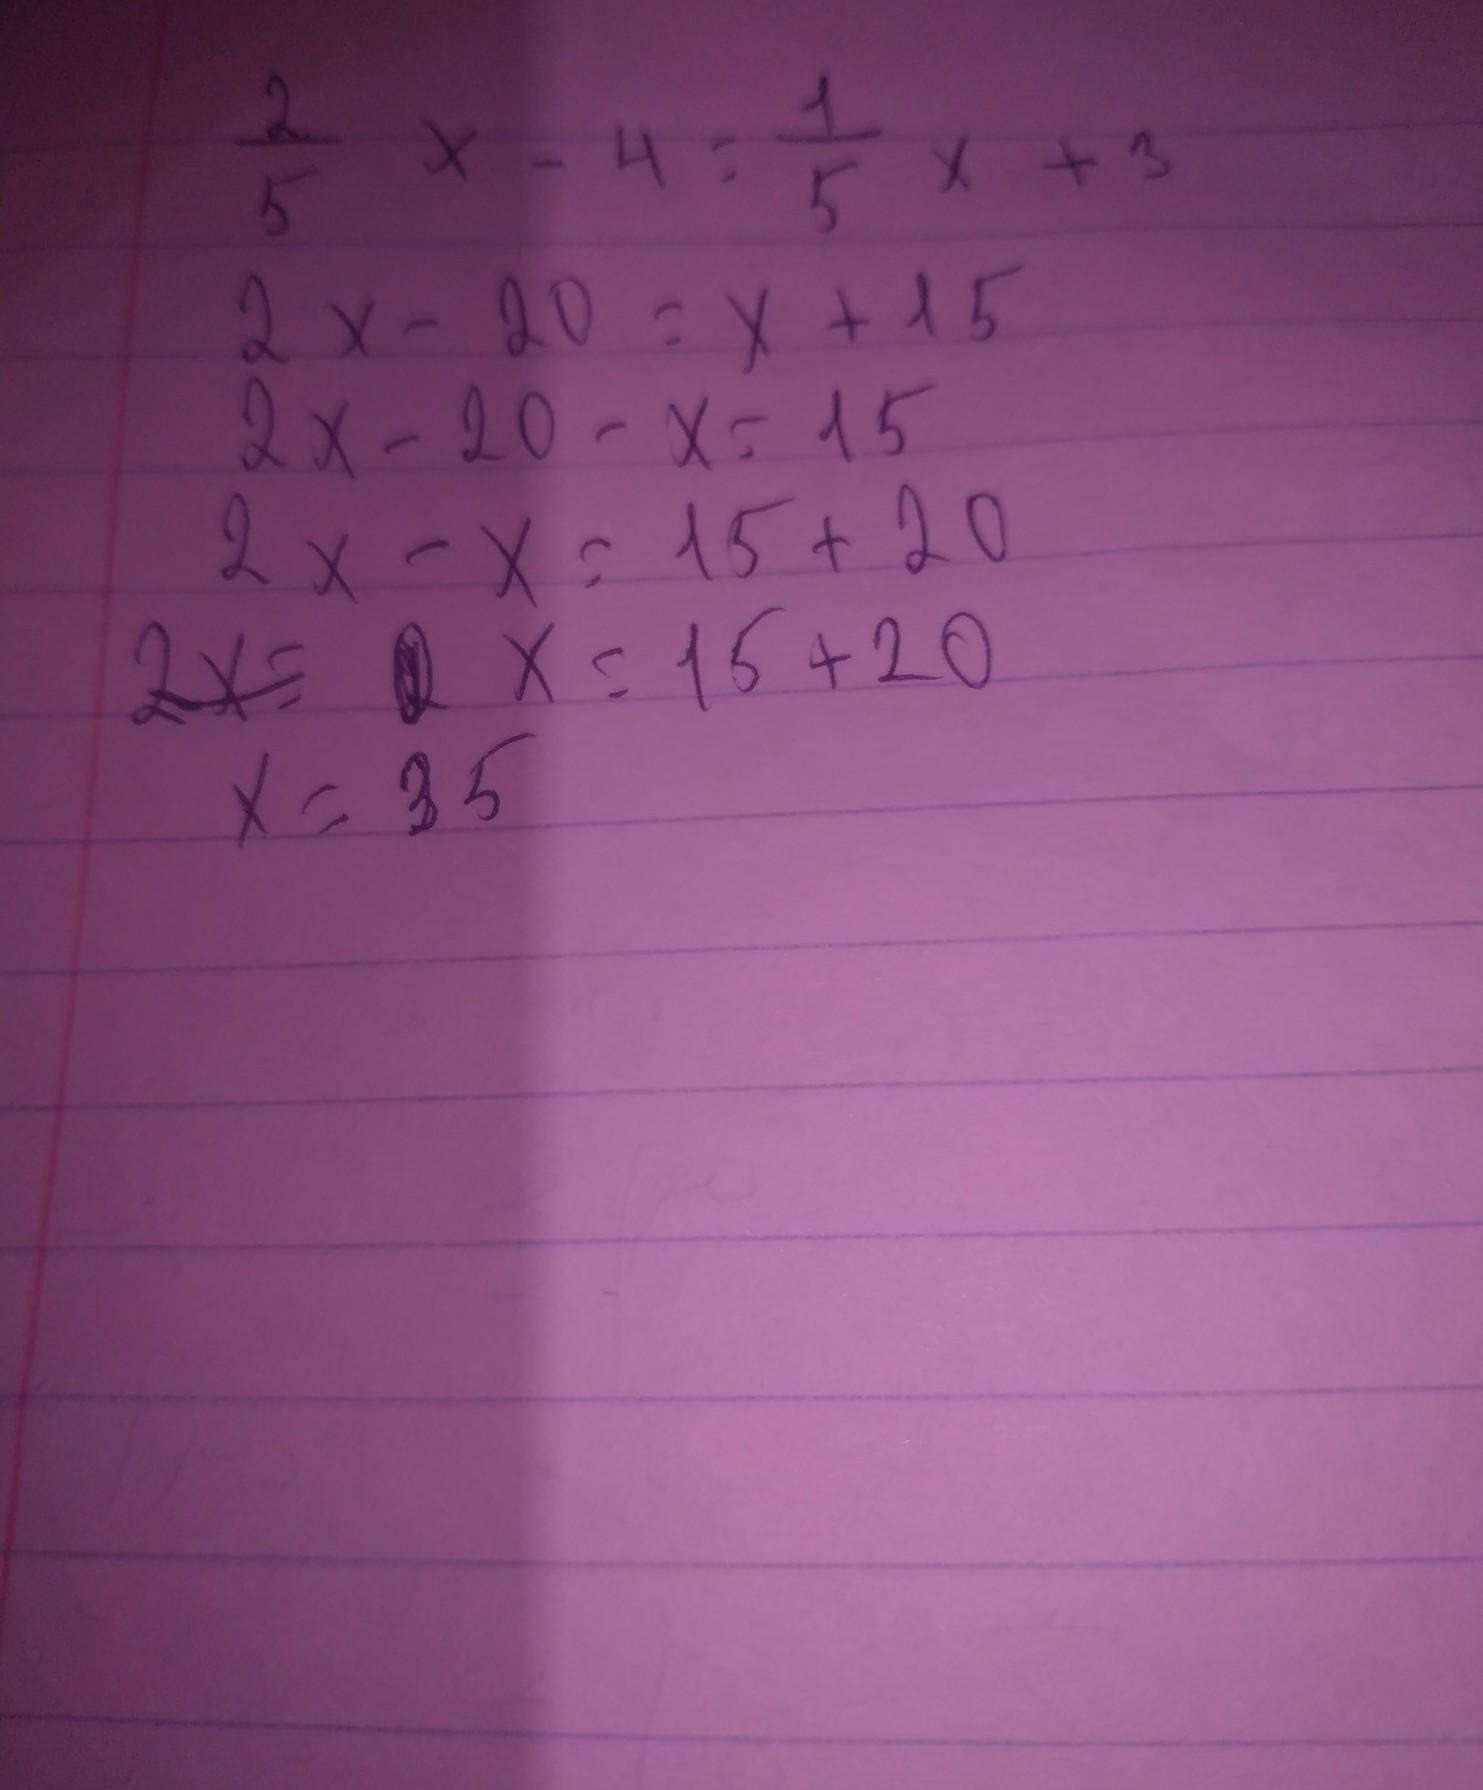 2/5 x - 4 = 1/5 x + 3
2x - 20 = x + 15
2x - 20 - x = 15
2x - x = 15 + 20
2x = x = 15 + 20
x = 35